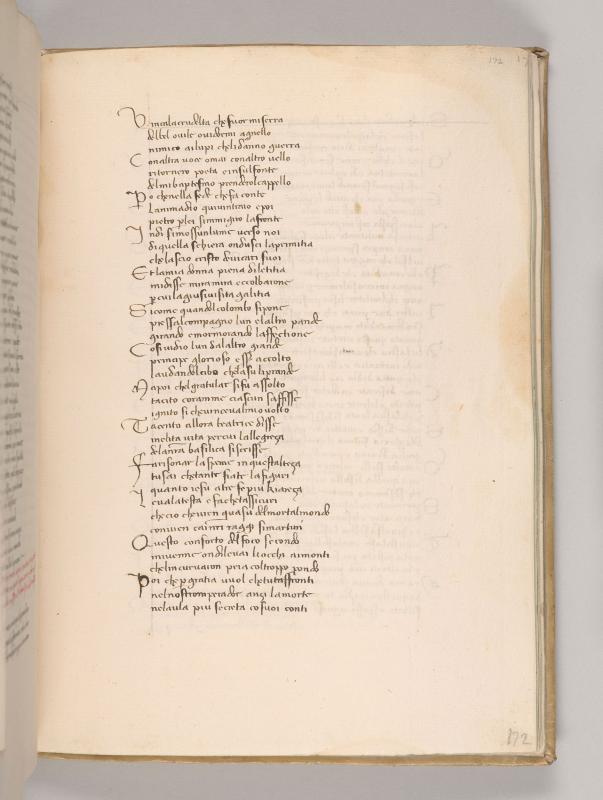 172
Vincalacrudelta che fuor miserra
delbel ouile ouidormi agnello
nimico ailupi chelidanno guerra
Conaltra uoce omai conaltro uello
ritornero poeta e insulfonte
delmi baptesmo prenderolcappello
Po che nella fede chefa conte
lanimadio quiuintraio epoi
pietro plei simmigiro lafronte
Indi simossunlume uerso noi
diquella schiera ondusci laprimitia
chelascio cristo deuicari suoi
Et lamia donna piena diletitia
midisse mira mira ecco ilbarone
p cui lagiusiuisita galitia
Sicome quandol colombo sipone
pressalcompagno lun elaltro pande
girando emormorando laffectione
Cosiuidio lun dalaltro grande
principe glorioso esse accolto
laudandolcibo chelasuliprande
Mapoi chelgratular sifu assolto
tacito coramme ciascun saffisse
ignito si cheuinceualmiouolto
Ridendo
inclita uita percui lallegreça
delanra basilica siscrisse
Farisonar laspeme in questalteça
tusai chetante fiate lafiguri
quanto iesu atre fe piu kiareça
Leualatesta e fachetassicuri
checio cheuien quasu delmortalmondo
conuien canri raggi simaturi
Questo conforto del foco secondo
miuenne ondileuai liocchi aimonti
chelincuruaron pria coltroppo pondo
Poi che p gratia uuol chetutaffronti
nelnostromperadore anzi lamorte
nelaula piu secreta cosuoi conti
172